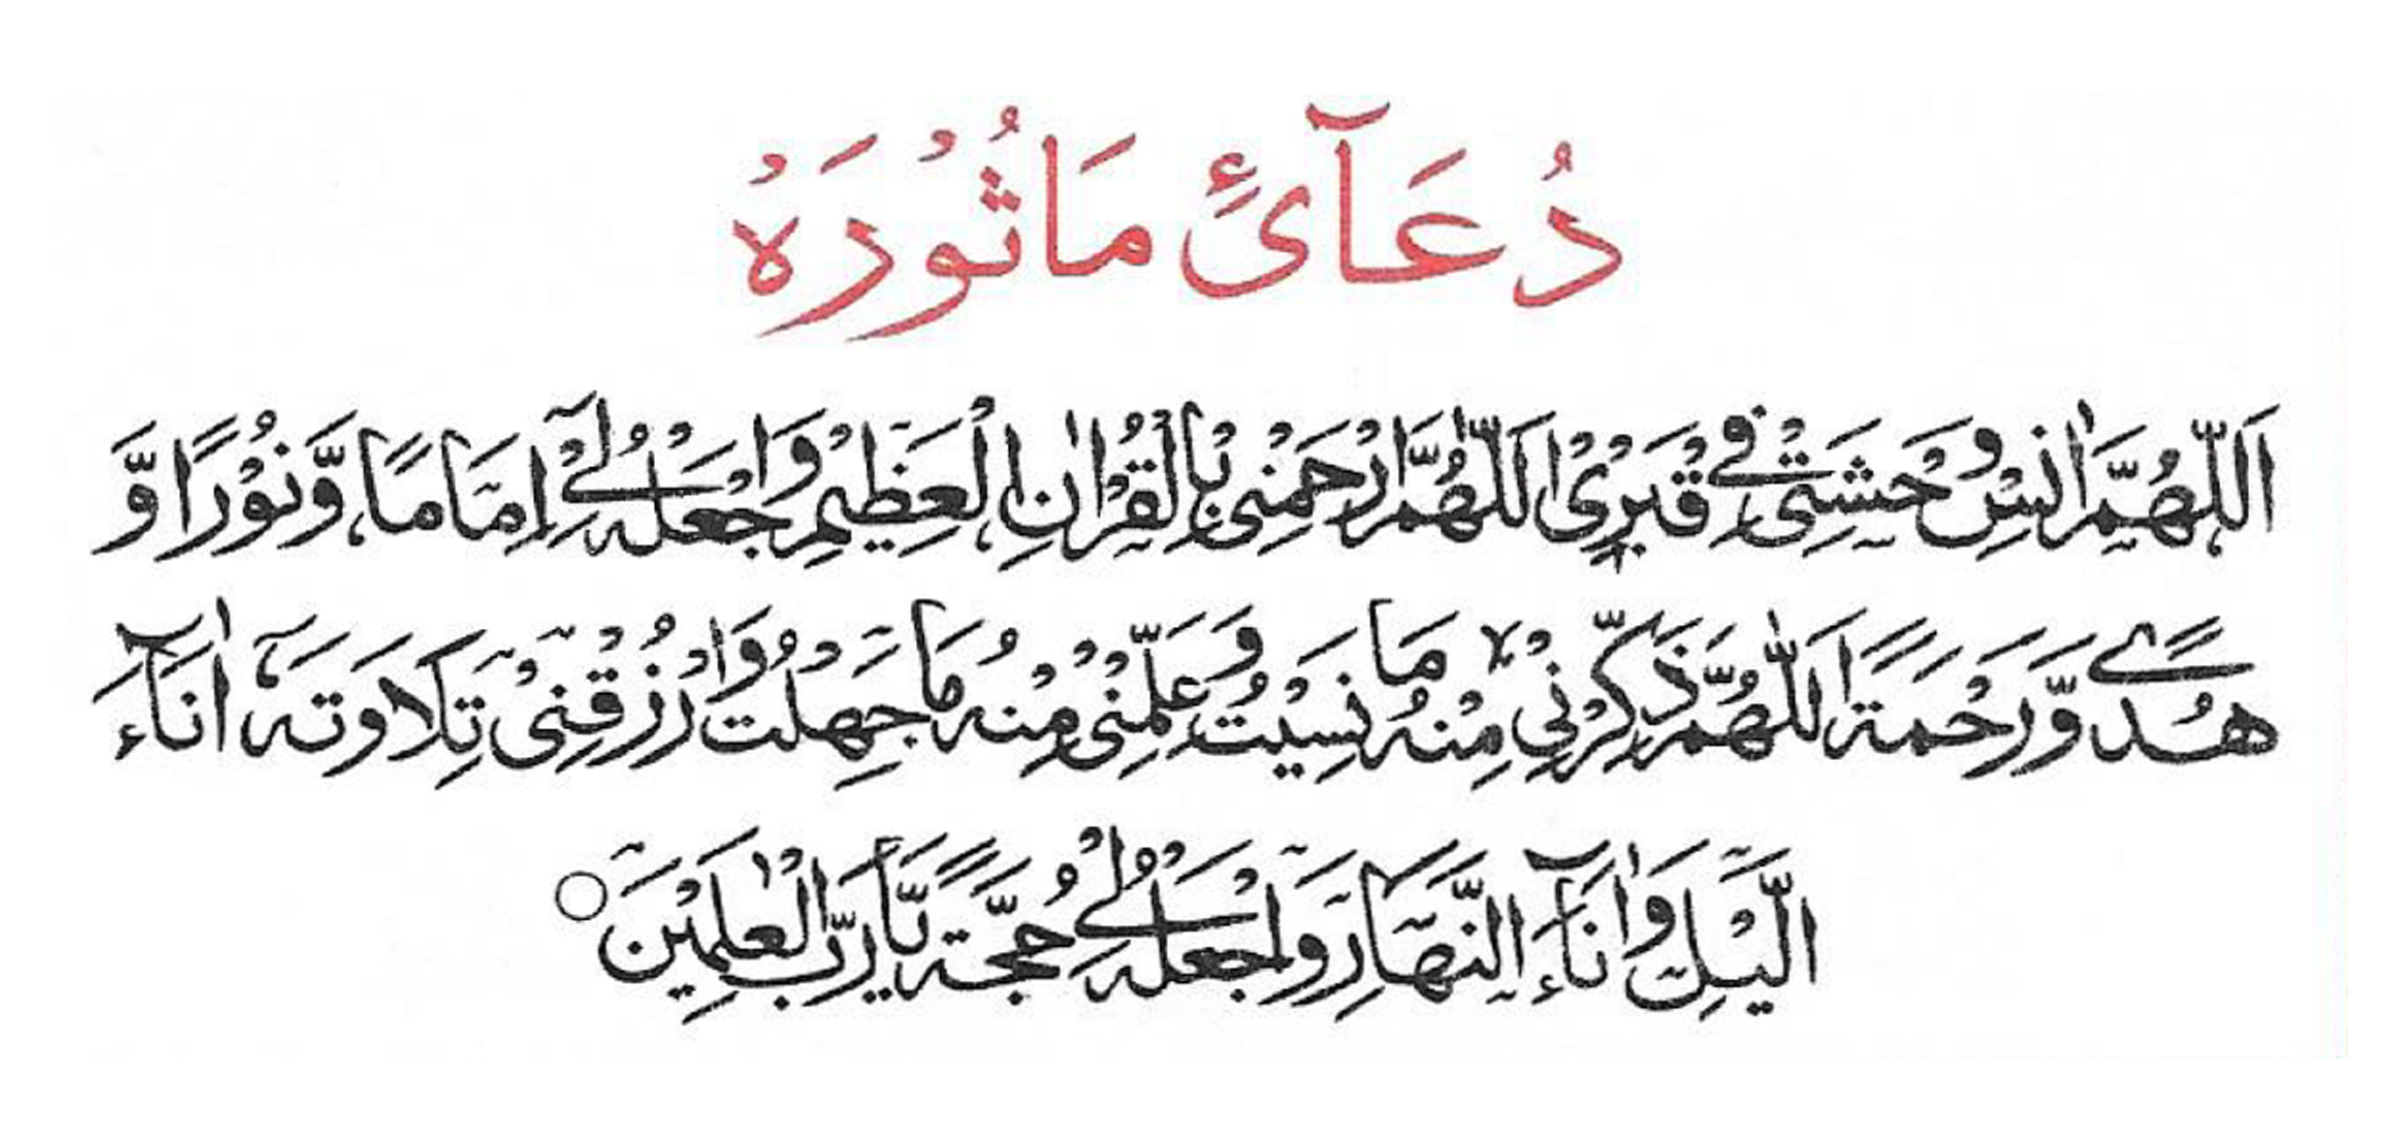 دُعَآئِ مَاثُوْرَہْ
اَللّٰهُمَّ اٰنِسْ وَحْشَتِیْ فِیْ قَبْرِیْ اَللّٰهُمَّ ارْحَمْنِیْ بِالْقُرْاٰنِ الْعَظِیْمِ وَاجْعَلْهُ لِیْٓ اِمَامًا وَّنُوْرًا وَّ
هُدًی وَّرَحْمَةً اَللّٰهُمَّ ذَكِّرْنِیْ مِنْهُ مَا نَسِیْتُ وَعَلِّمْنِیْ مِنْهُ مَا جَهِلْتُ وَارْزُقْنِیْ تِلَاوَتَهٗٓ اٰنَآءَ
الَّیْلِ وَاٰنَآءَ النَّهَارِ وَاجْعَلْهُ لِیْ حُجَّةً یَّا رَبَّ الْعٰلَمِیْنَ ○